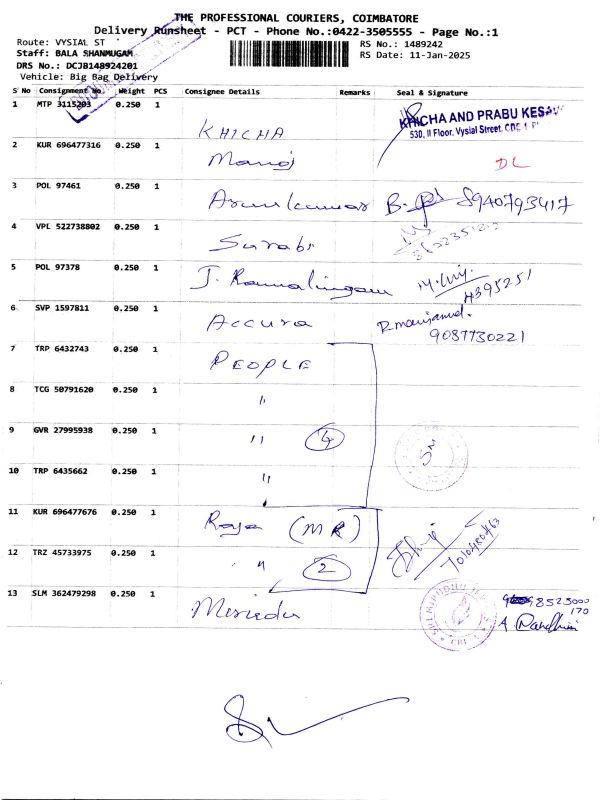 THE PROFESSIONAL COURIERS, COIMBATORE
Delivery Runsheet - PCT - Phone No.:0422-3505555 - Page No.:1
Route: VYSIAL ST
RS No.: 1489242
Staff: BALA SHANMUGAM
RS Date: 11-Jan-2025
DRS No.: DCJB148924201
Vehicle: Big Bag Delivery
S No Consignment No. Weight PCS Consignee Details Remarks Seal & Signature
1 MTP 3115203 0.250 1 KHICHA
KHICHA AND PRABU
530, II Floor, Vysial Street,
2 KUR 696477316 0.250 1 Manoj
DL
3 POL 97461 0.250 1 Arunkumar B. 8940793417
4 VPL 522738802 0.250 1 Surabi
5 POL 97378 0.250 1 J. Ramalingam
4395251
6 SVP 1597811 0.250 1 Accura
9087730221
7 TRP 6432743 0.250 1 PEOPLE
8 TCG 50791620 0.250 1 "
9 GVR 27995938 0.250 1 " 4
SM
10 TRP 6435662 0.250 1 "
11 KUR 696477676 0.250 1 Raja (MR)
12 TRZ 45733975 0.250 1 " 2
13 SLM 362479298 0.250 1
98525000
170